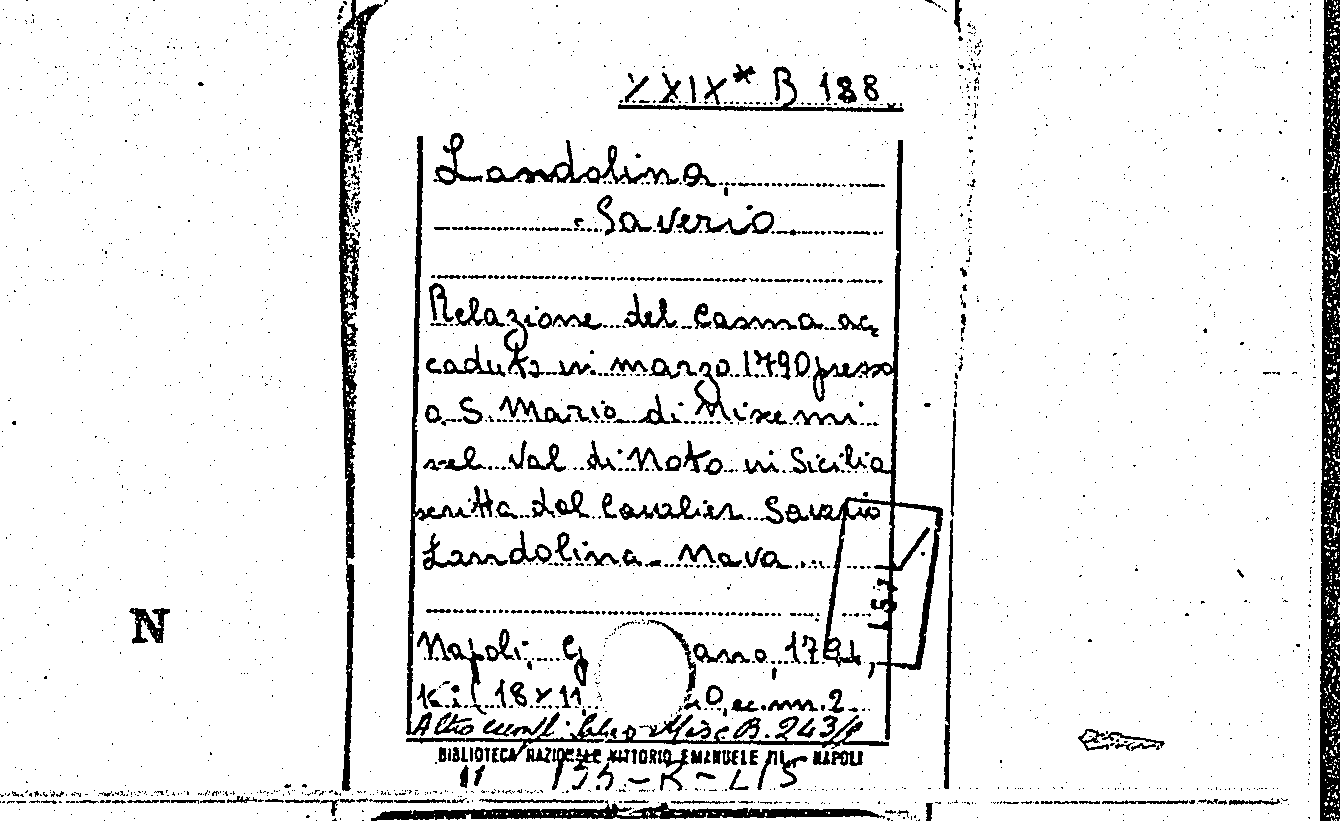 XXIX* B 188
Landolina,
Saverio.
Relazione del casma ac
caduto in marzo 1790 presso
a S. Maria di Niscemi
nel Val di Noto in Sicilia
scritta dal Cavalier Saverio
Landolina Nava...
157
N
Napoli, G ano, 1791,
(18 x 11, 20, ec. nn. 2.
Altro B. 243/
BIBLIOTECA NAZIONALE VITTORIO EMANUELE III - NAPOLI